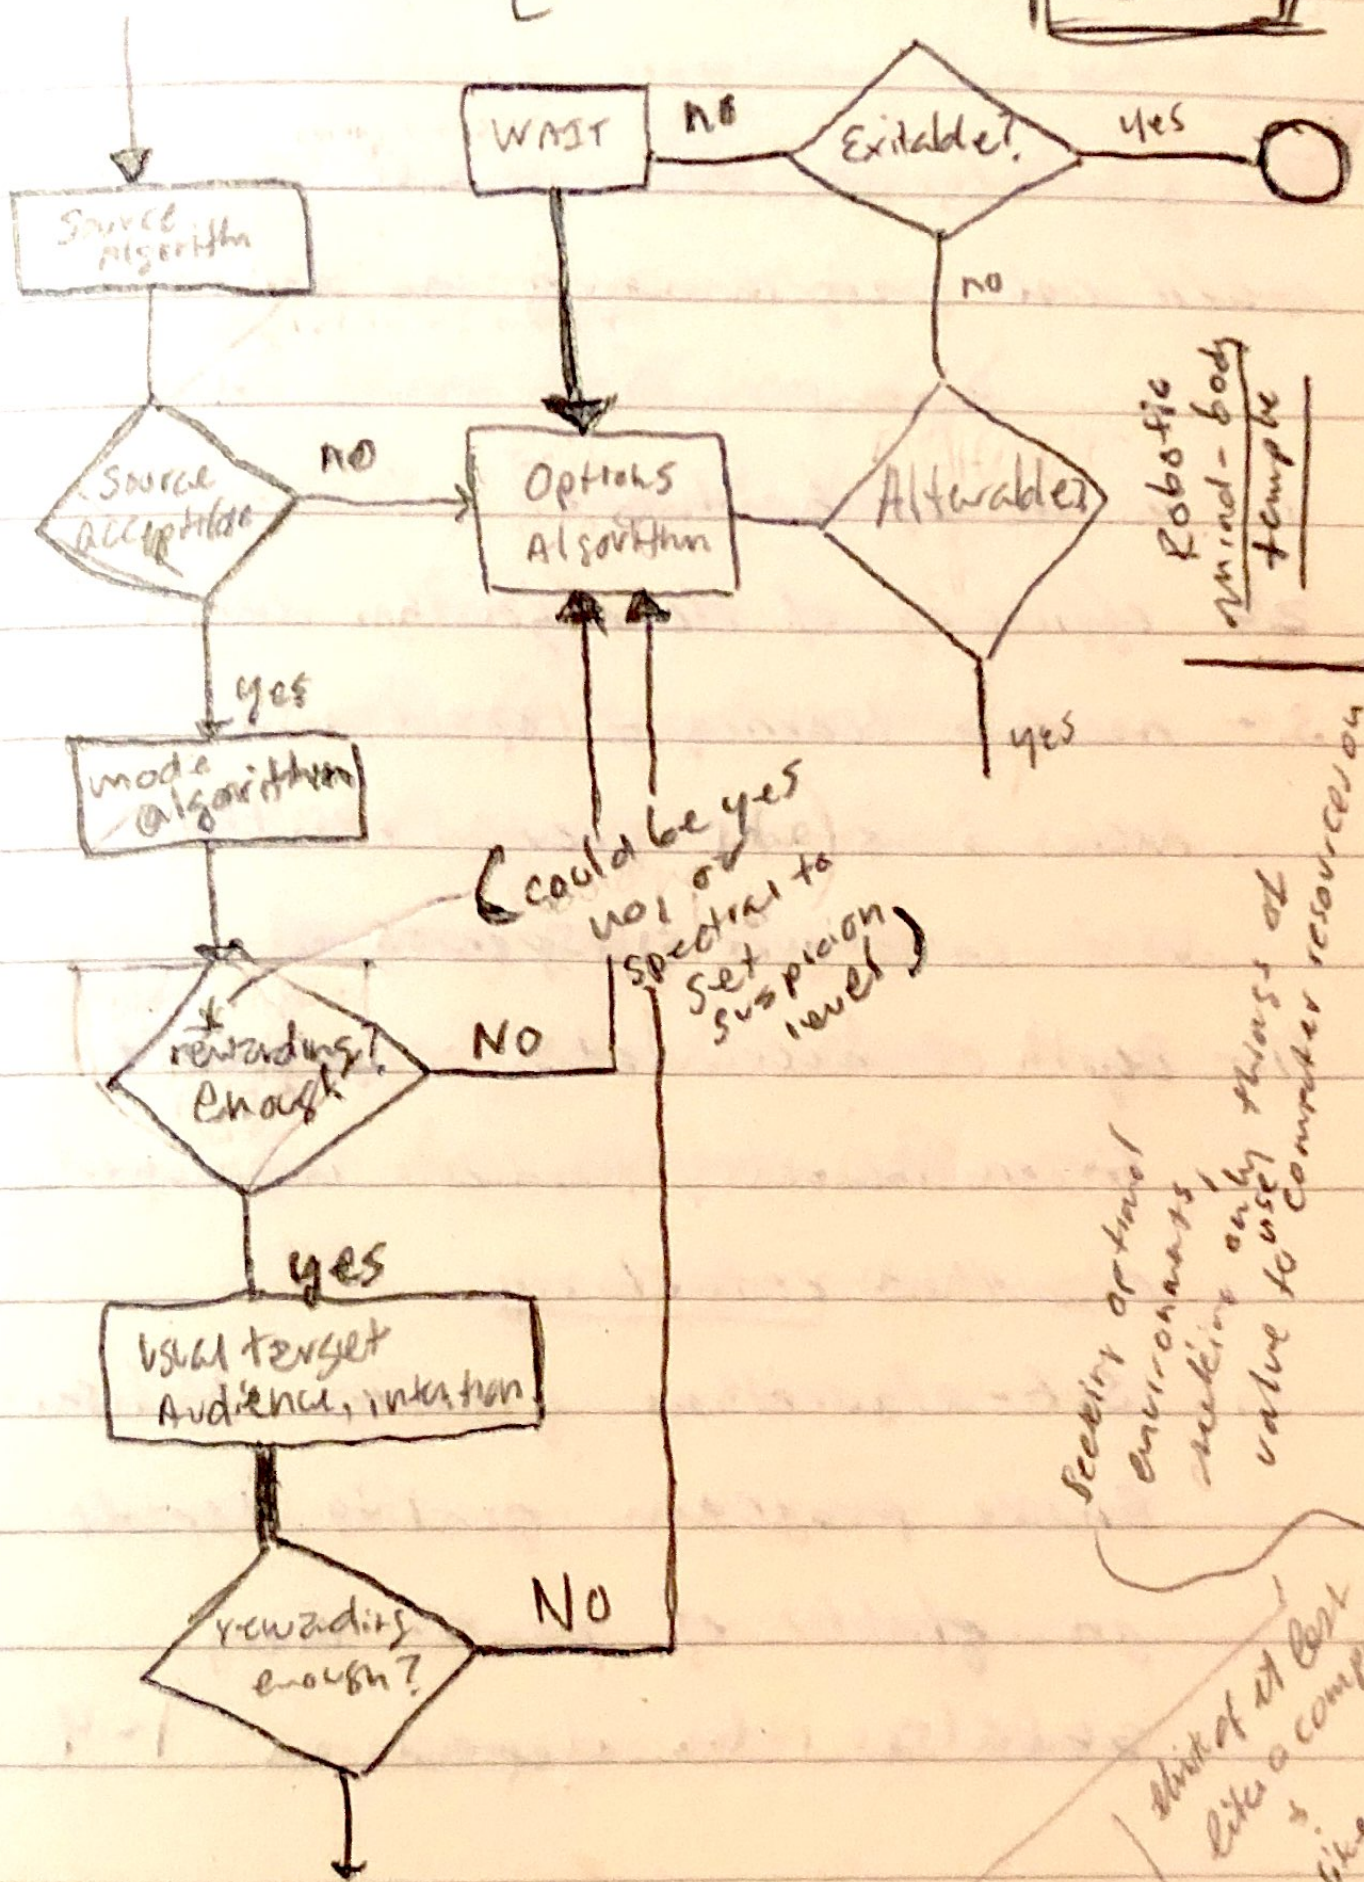 WAIT
no
Exitable?
yes
Source
Algorithm
no
Source
no
Options
Algorithm
Alterable?
Robotic
mind-body
temple
yes
yes
mode
algorithm
(could be yes
no, or
spectral to
set
suspicion
level)
*
rewarding?
Enough?
NO
yes
usual target
Audience, intention
rewarding
enough?
NO
Seeking optional
environments,
seeking only things of
value to use,
computer resources on
think of it less
like a comp